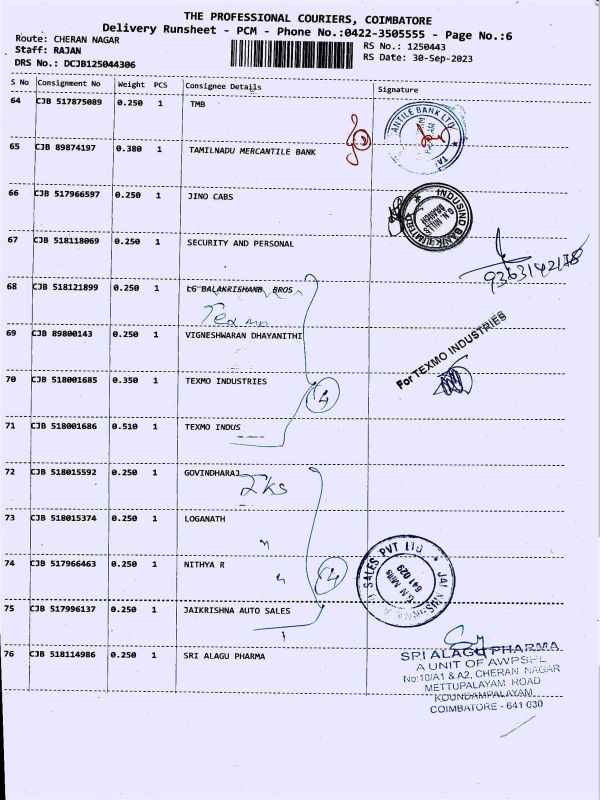 THE PROFESSIONAL COURIERS, COIMBATORE
Delivery Runsheet - PCM - Phone No.:0422-3505555 - Page No.:6
Route: CHERAN NAGAR
Staff: RAJAN
DRS No.: DCJB125044306
RS No.: 1250443
RS Date: 30-Sep-2023
S No Consignment No Weight PCS Consignee Details Signature
64 CJB 517875089 0.250 1 TMB
ANTILE BANK LTD
65 CJB 89874197 0.380 1 TAMILNADU MERCANTILE BANK
66 CJB 517966597 0.250 1 JINO CABS
INDUSIND BANK LIMITED
G.N. MILLS
BRANCH
67 CJB 518118069 0.250 1 SECURITY AND PERSONAL
9363142178
68 CJB 518121899 0.250 1 LG BALAKRISHANB BROS
69 CJB 89800143 0.250 1 VIGNESHWARAN DHAYANITHI
For TEXMO INDUSTRIES
70 CJB 518001685 0.350 1 TEXMO INDUSTRIES
4
71 CJB 518001686 0.510 1 TEXMO INDUS
72 CJB 518015592 0.250 1 GOVINDHARAJ
73 CJB 518015374 0.250 1 LOGANATH
74 CJB 517966463 0.250 1 NITHYA R
4
SALES PVT LTD * JAI
G.N Mills
641 029
75 CJB 517996137 0.250 1 JAIKRISHNA AUTO SALES
76 CJB 518114986 0.250 1 SRI ALAGU PHARMA
SRI ALAGU PHARMA
A UNIT OF AWPSPL
No:10/A1 & A2, CHERAN NAGAR
METTUPALAYAM ROAD
KOUNDAMPALAYAM
COIMBATORE - 641 030